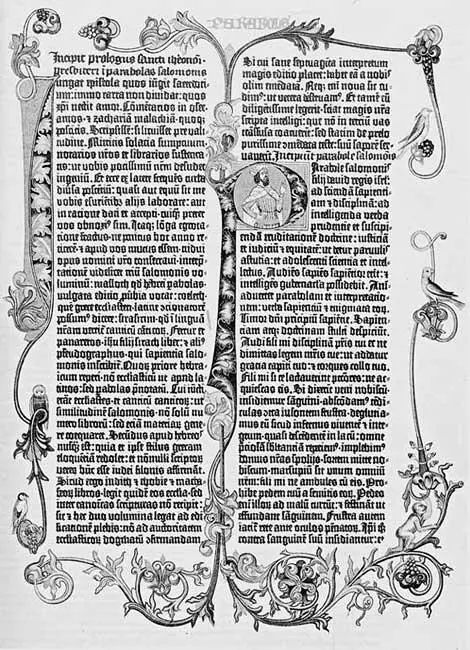 PARABOLE
Incipit prologus sancti iheronimi
presbiteri ī parabolas salomonis
Iungat epistola quos iūgit sacerdo-
tium: immo carta non dividat: quos
xp̄i nectit amor. Cōmētarios in osee.
amos. et zachariā malachiā. quoq;
poscitis. Scripsissē: si licuisset pre vali-
tudine. Mittitis solacia sumptuum.
notarios nr̄os et librarios sustenta-
tis: ut vobis potissimū nr̄m desudet
ingeniū. Et ecce ex latere frequēs turba
diversa poscētiū: quasi aut equū sit me
vobis esurientibꝫ aliis laborare: aut
in racione dati et accepti. cuiq̄ȝ preter
vos obnoxiꝰ sim. Itaq; lōga egrota-
tione fractus. ne penitus hoc anno re-
ticerē. et apud vos mutus essem. tridui
opus nomini vr̄o consecravi. interp̄-
tationē videlicet triū salomonis vo-
luminū: masloth qd̄ hebrei parabolas.
vulgata editio ꝓverbia vocat: coeleth.
quē grece ecclesiasten. latine cōcionatorē
possumꝰ dicere: sirasirim. qd̄ ī linguā
nr̄am vertit canticū cāticoꝝ. Fertur et
panaretos. ihu filii sirach liber: et aliꝰ
pseudographus. qui sapientia salo-
monis inscribit̄. Quoꝝ priorē hebra-
icum repperi. nō ecclesiasticū ut apud la-
tinos: sed parabolas p̄notatū. Cui iūcti
erāt ecclesiastes. et canticū canticoꝝ: ut
similitudinē salomonis. nō solū nu-
mero librorū: sed etiā materiaꝝ gene-
re coequaret. Secūdus apud hebreos
nusq̄ȝ est: quia et ipse stilus grecam
eloquētiā redolet: et nōnulli scriptoꝝ
veteꝝ hūc esse iudei filonis affirmāt.
Sicud ergo iudith et thobie et macha-
beoꝝ libros. legit quidē eos ecclesia. sed
inter canonicas scripturas nō recipit:
sic et hec duo volumina legat ad edi-
ficationē plebis: nō ad auctoritatem
ecclesiasticoꝝ dogmatū ꝯfirmandam.
Si cui sane septuaginta interpretum
magis editio placet: habet eā a nobis
olim emēdatā. Neq; em̄ nova sic cu-
dimꝰ: ut vetera destruamꝰ. Et tamē cū
diligētissime legerit. sciat magis nr̄a
scripta intelligi: que nō in terciū vas
trāsfusa coacuerīt: sed statim de prelo
purissime ꝯmēdata teste: suū sapore ser-
vaverīt. Incipiunt parabole salomōis
Parabole salomonis
filii david regis isrl̄:
ad sciendā sapienti-
am et disciplinā: ad
intelligenda verba
prudentie et suscipi-
endā eruditationē doctrine: iusticiā
et iudiciū et equitatē: ut detur parvulis
astutia: et adolescenti scientia et intel-
lectus. Audiēs sapiēs sapiētior erit: et
intelligēs gubernacla possidebit. Ani-
advertet parabolam et interpretatio-
nem: verba sapientiū et enigmata eoꝝ.
Timor dn̄i principiū sapiētie. Sapien-
tiam atq; doctrinam stulti despiciūt.
Audi fili mi disciplinā pr̄is tui et ne
dimittas legem mr̄is tue: ut addatur
gratia capiti tuo: et torques collo tuo.
Fili mi si te lactaverint peccatores: ne ac-
quiescas eis. Si dixerīt veni nobiscū.
insidiemur sāguini. abscōdamꝰ tēdi-
culas ꝯtra insontem frustra. deglutia-
mus eū sicud infernus viventē et inte-
grum. quasi descēdentē in lacū: omnē
p̄ciosā substātiā repiemꝰ. implebimꝰ
domus nr̄as spoliis. sortem mitte no-
biscum. marsupiū sit unum omniū
nr̄m: fili mi ne ambules cū eis. Pro-
hibe pedem tuū a semitis eoꝝ. Pedes
em̄ illoꝝ ad malū currūt: et festināt ut
effundant sāguinem. Frustra autem
iacit̄ rete ante oculos pēnatoꝝ. Ipsi q̄;
contra sanguinē suū insidiantur: et